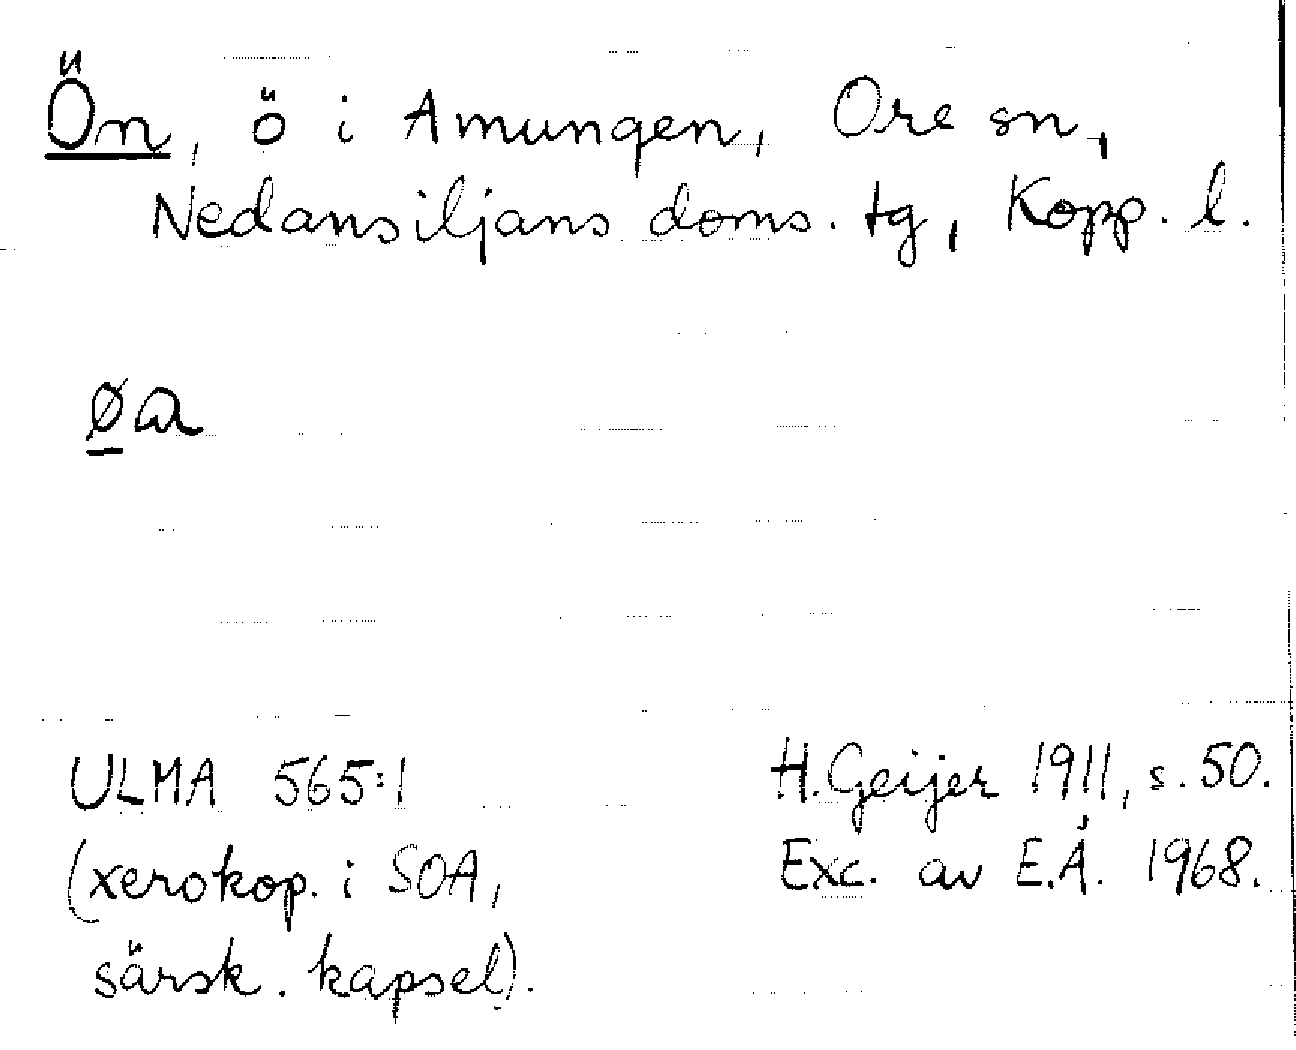 Ön, ö i Amungen, Ore sn,
Nedansiljans doms. tg, Kopp. l.
øa
ULMA 565:1
(xerokop. i SOA,
särsk. kapsel).
H. Geijer 1911, s. 50.
Exc. av E.Å. 1968.